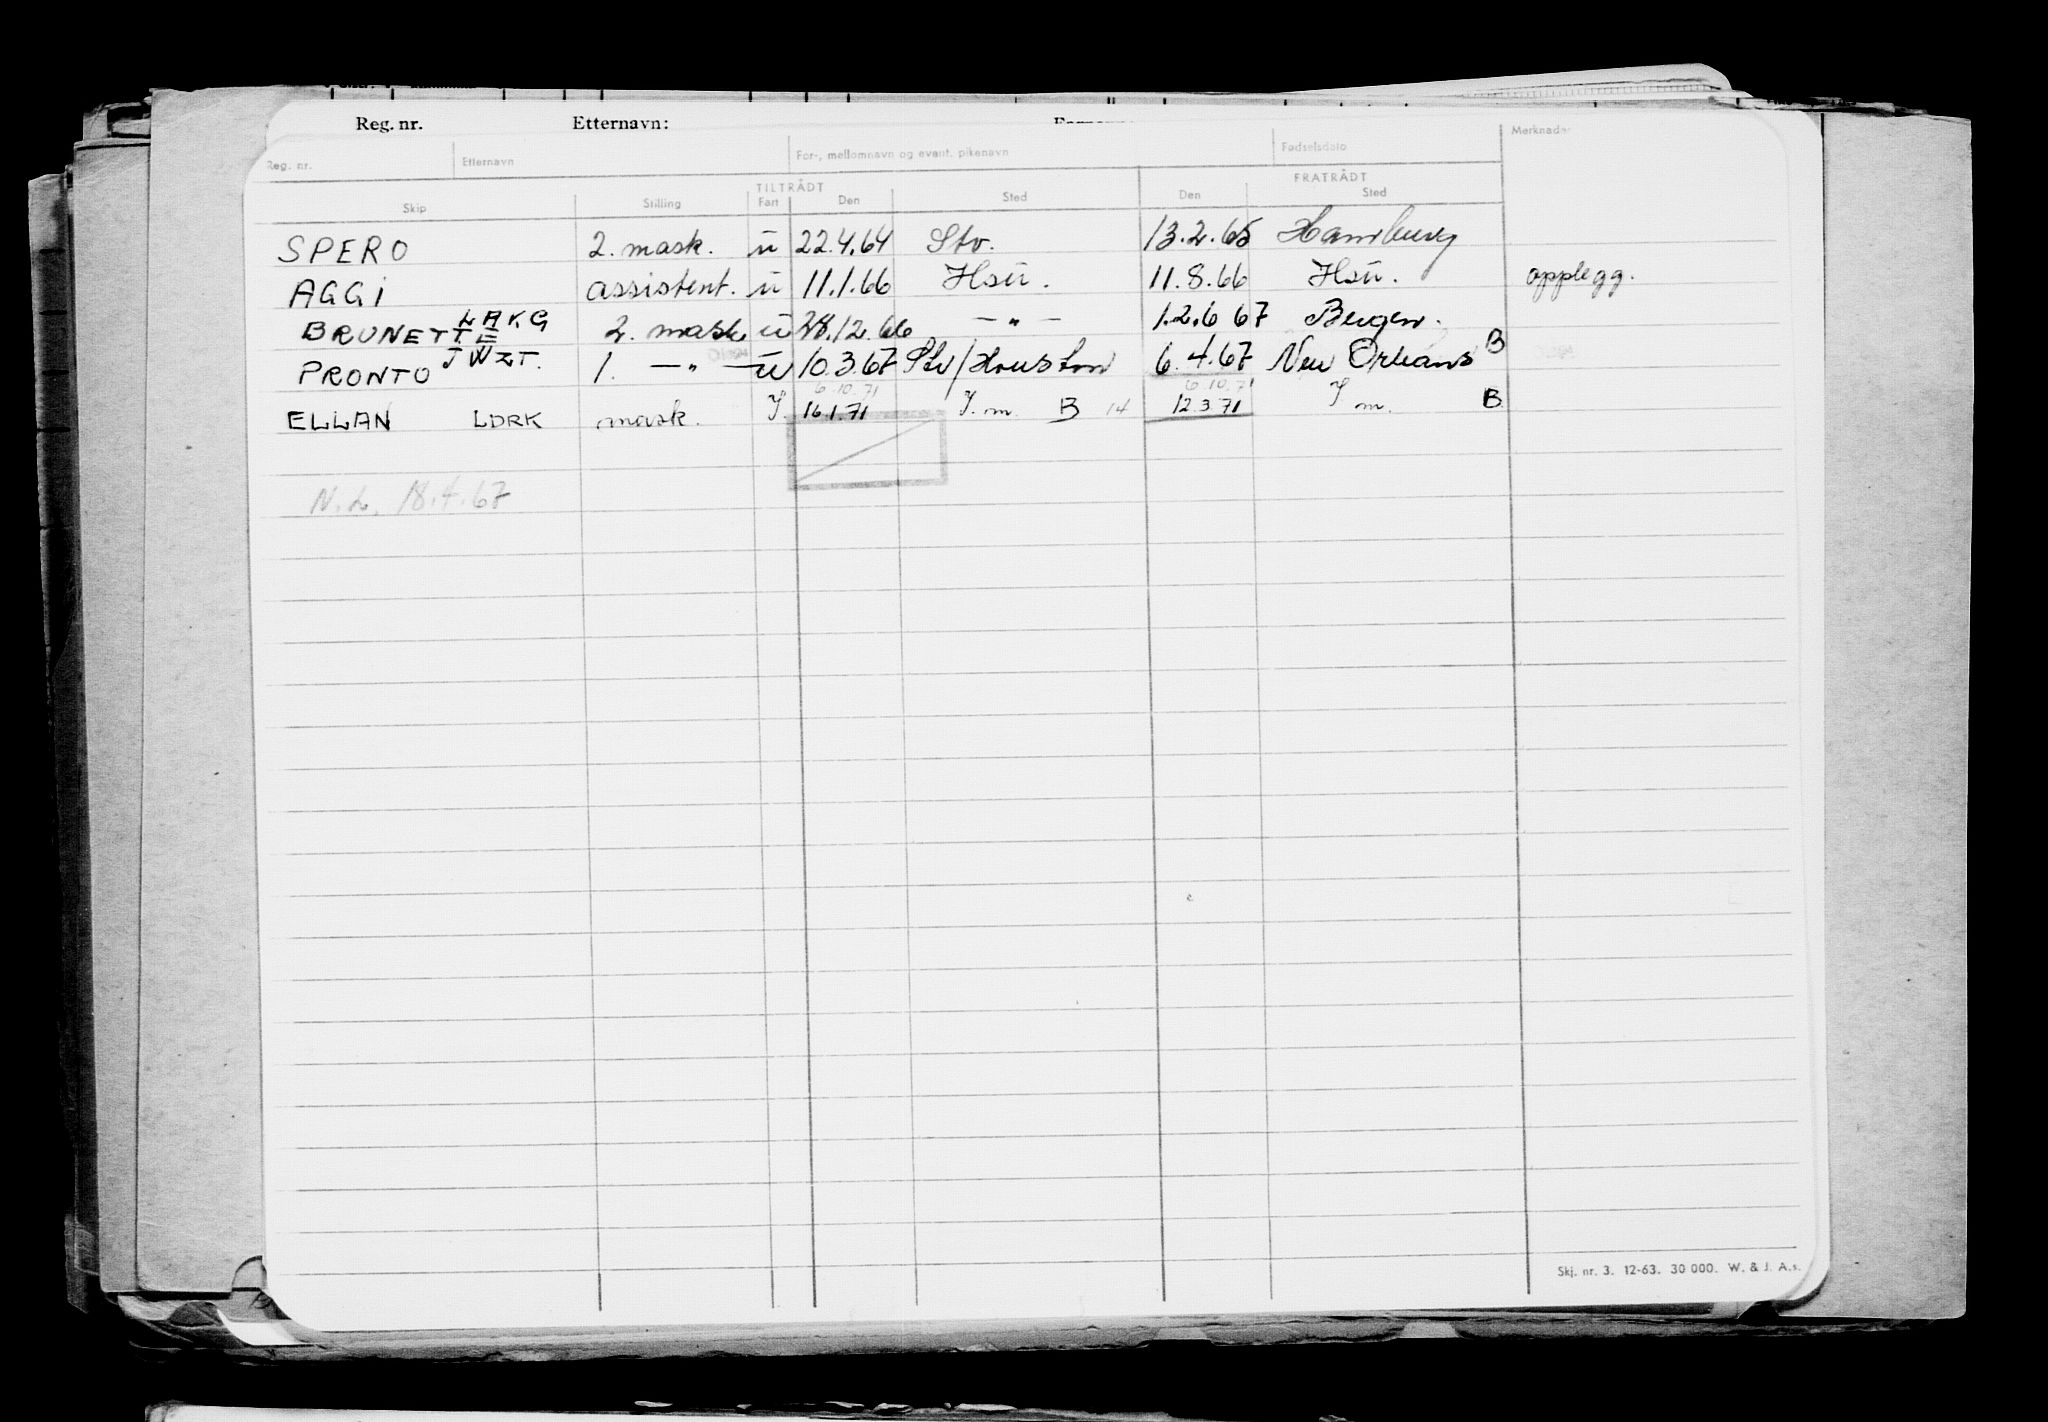 Reg. nr. Etternavn:
Reg. nr. Etternavn For-, mellomnavn og event. pikenavn Fødselsdato Merknader
TILTRÅDT FRATRÅDT
Skip Stilling Fart Den Sted Den Sted
SPERO 2. mask. u 22.4.64 Stv. 13.2.65 Hamburg
AGGI assistent. u 11.1.66 Hsu. 11.8.66 Hsu. opplegg.
BRUNETTE LAKG 2. mask u 28.12.66 — " — 1.2.6 67 Bergen.
PRONTO JWZT. 1. — " — u 10.3.67 Stv/Houston 6.4.67 New Orleans B
6.10.71 6.10.71
ELLAN LDRK mask. I. 16.1.71 I. m. B 14 12.3.71 I m. B
N.L. 18.4.67
Skj. nr. 3. 12-63. 30 000. W. & J. A.s.